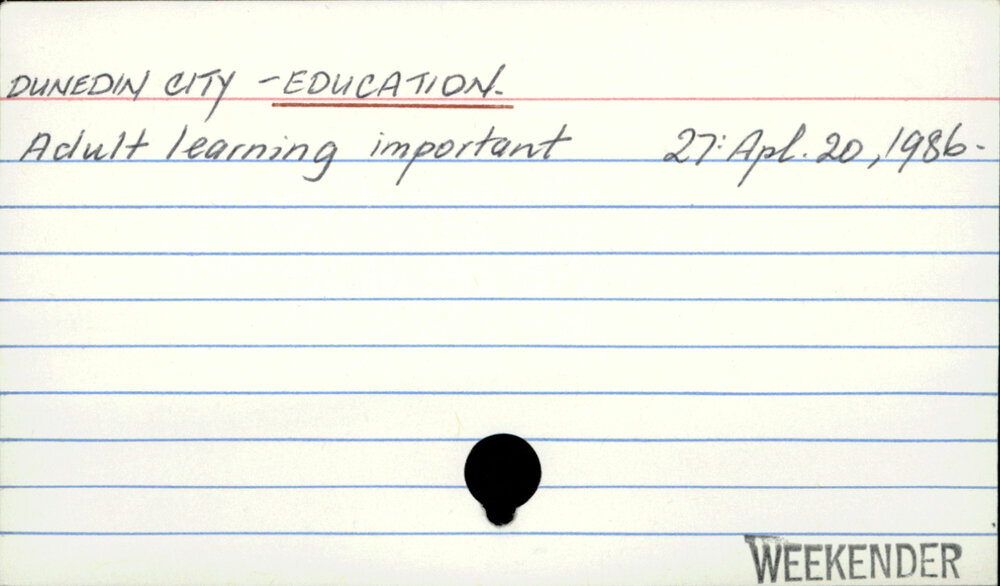 DUNEDIN CITY - EDUCATION.
Adult learning important 27: Apl. 20, 1986.
WEEKENDER